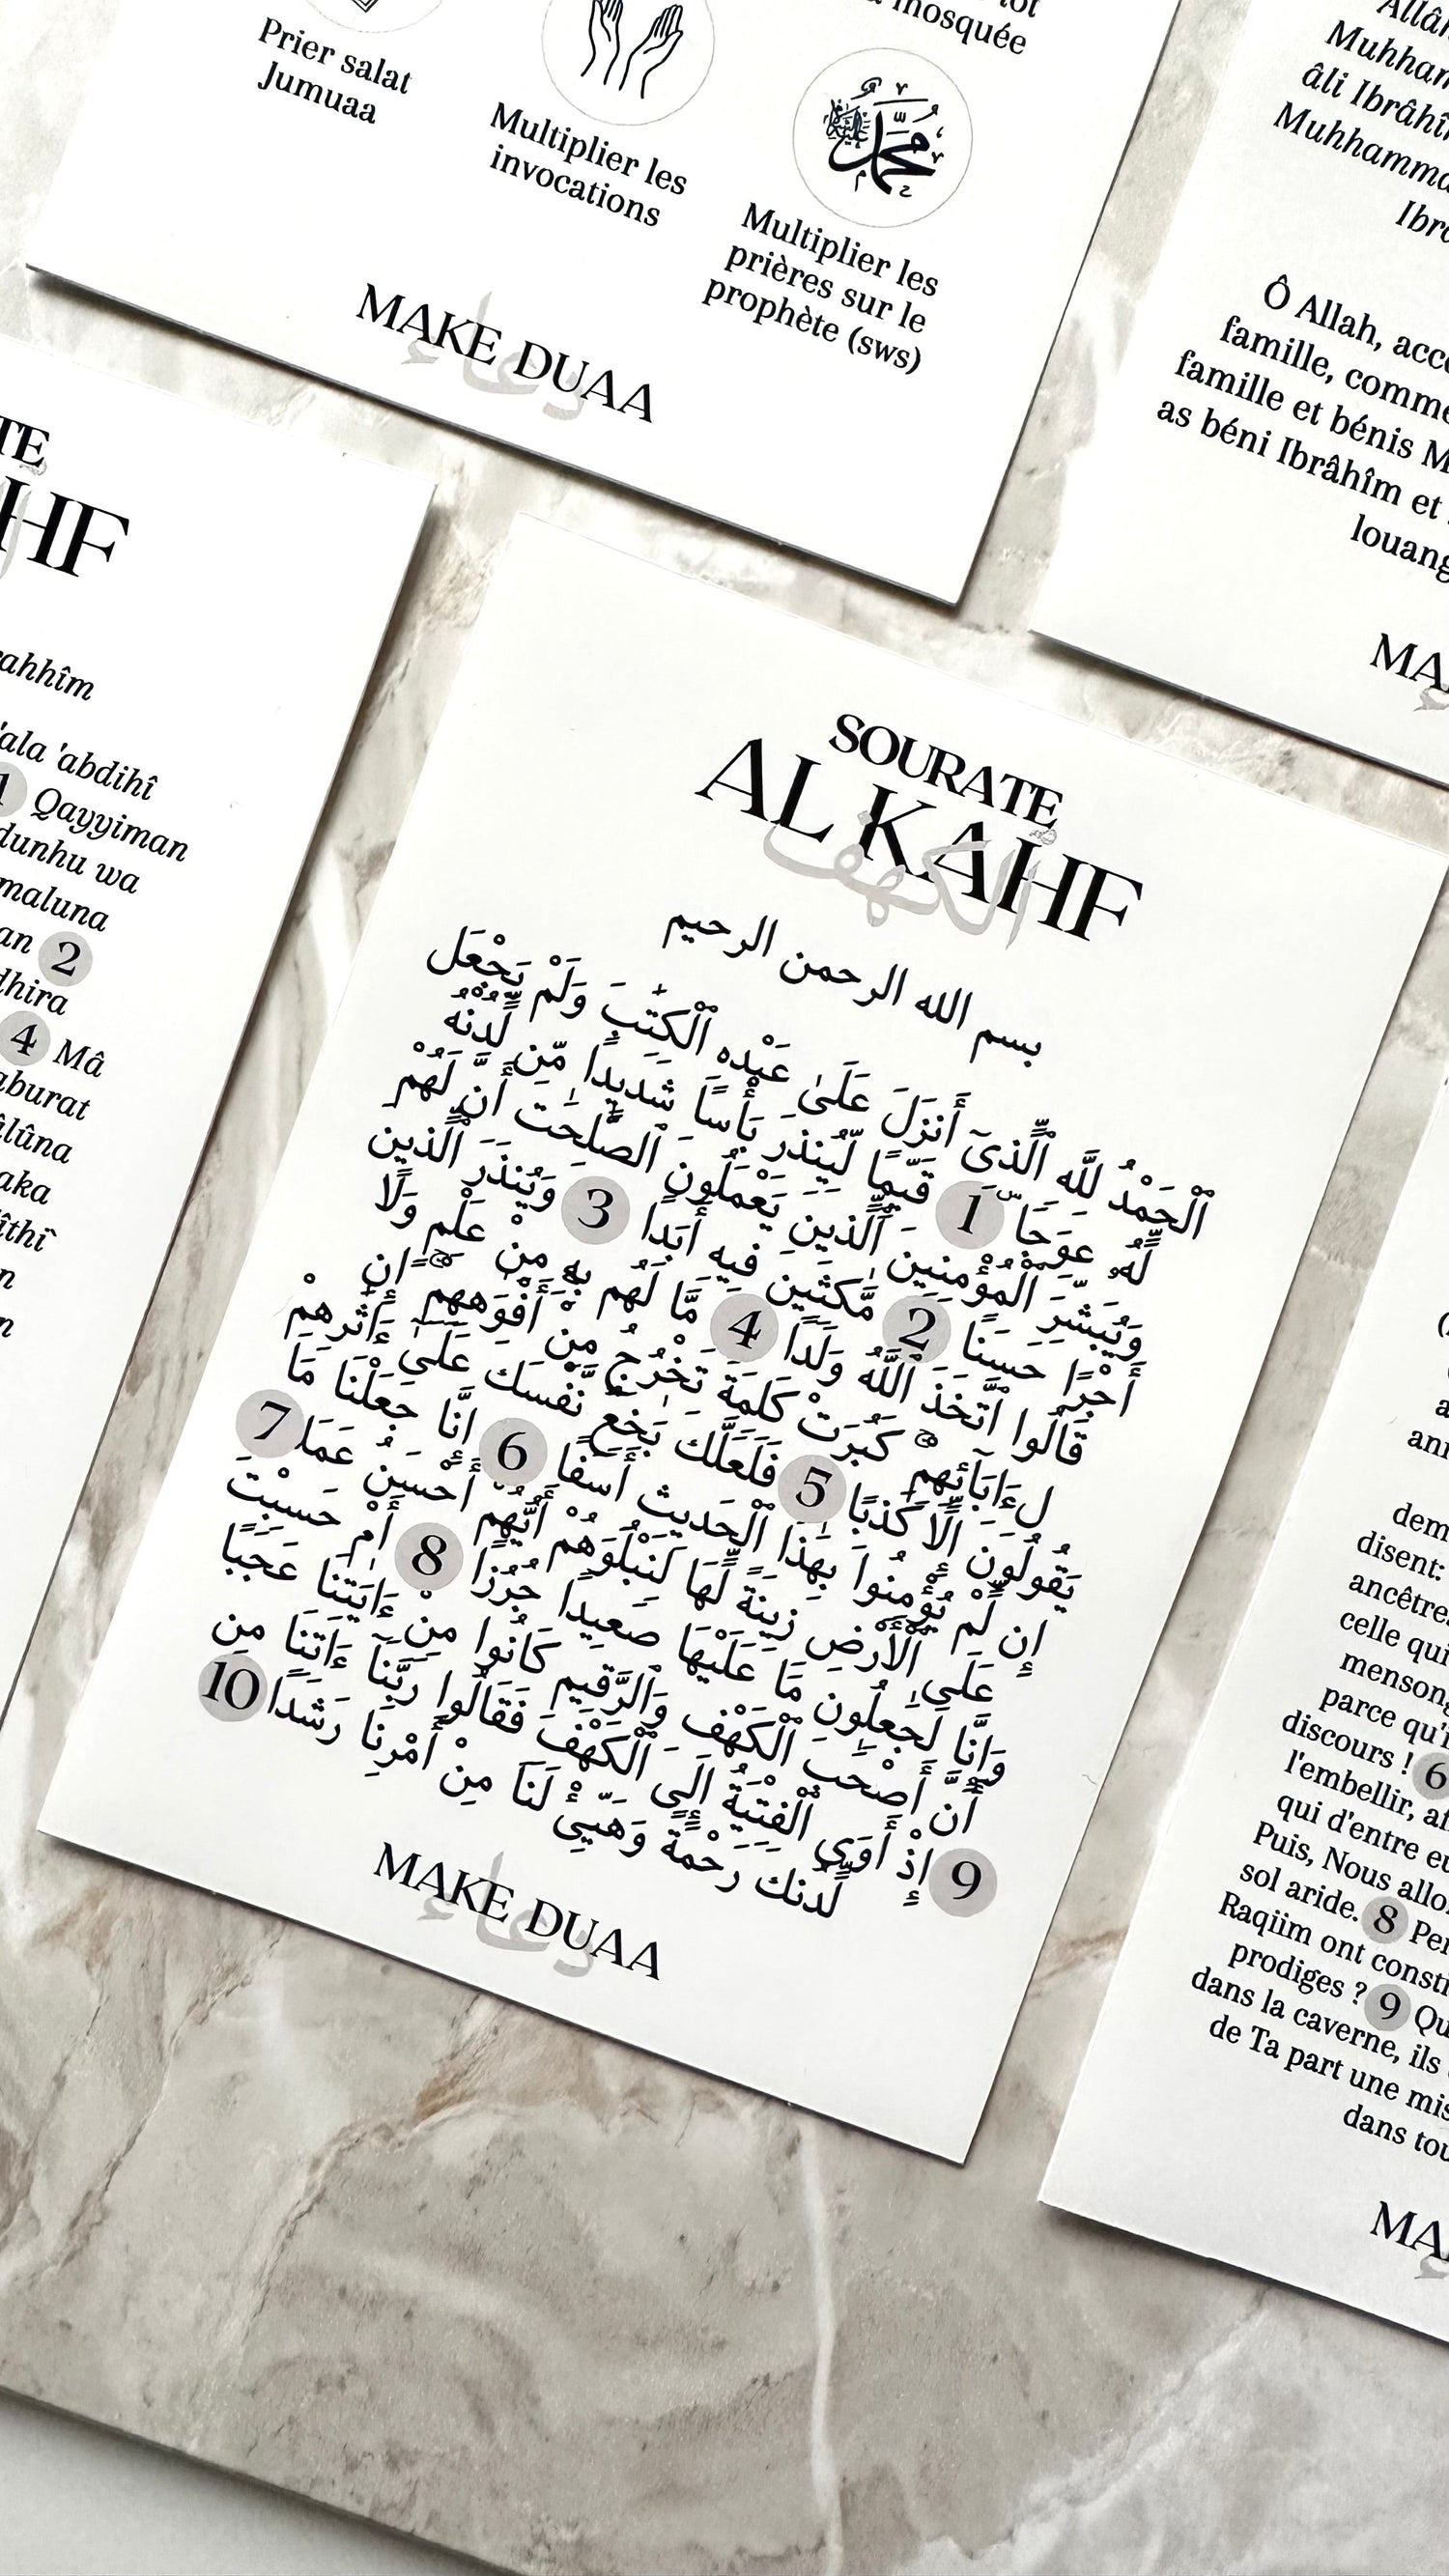 Prier salat
Jumuaa
Multiplier les
invocations
mosquée
Multiplier les
prières sur le
prophète (sws)
MAKE DUAA
دعاء
âli Ibrâhî
Ô Allah, acc
famille, comme
famille et bénis M
as béni Ibrâhîm et
louang
MA
TE
HF
rahhîm
'ala 'abdihî
1 Qayyiman
dunhu wa
maluna
an 2
dhira
4 Mâ
aburat
ilûna
aka
îthî
n
n
SOURATE
AL KAHF
الكهف
بسم الله الرحمن الرحيم
ٱلْحَمْدُ لِلَّهِ ٱلَّذِىٓ أَنزَلَ عَلَىٰ عَبْدِهِ ٱلْكِتَٰبَ وَلَمْ يَجْعَل
لَّهُۥ عِوَجَاۜ 1 قَيِّمًا لِّيُنذِرَ بَأْسًا شَدِيدًا مِّن لَّدُنْهُ
وَيُبَشِّرَ ٱلْمُؤْمِنِينَ ٱلَّذِينَ يَعْمَلُونَ ٱلصَّٰلِحَٰتِ أَنَّ لَهُمْ
أَجْرًا حَسَنًا 2 مَّٰكِثِينَ فِيهِ أَبَدًا 3 وَيُنذِرَ ٱلَّذِينَ
قَالُوا۟ ٱتَّخَذَ ٱللَّهُ وَلَدًا 4 مَّا لَهُم بِهِۦ مِنْ عِلْمٍ وَلَا
لِءَابَآئِهِمْ ۚ كَبُرَتْ كَلِمَةً تَخْرُجُ مِنْ أَفْوَٰهِهِمْ ۚ إِن
يَقُولُونَ إِلَّا كَذِبًا 5 فَلَعَلَّكَ بَٰخِعٌ نَّفْسَكَ عَلَىٰٓ ءَاثَٰرِهِمْ
إِن لَّمْ يُؤْمِنُوا۟ بِهَٰذَا ٱلْحَدِيثِ أَسَفًا 6 إِنَّا جَعَلْنَا مَا
عَلَى ٱلْأَرْضِ زِينَةً لَّهَا لِنَبْلُوَهُمْ أَيُّهُمْ أَحْسَنُ عَمَلًا 7
وَإِنَّا لَجَٰعِلُونَ مَا عَلَيْهَا صَعِيدًا جُرُزًا 8 أَمْ حَسِبْتَ
أَنَّ أَصْحَٰبَ ٱلْكَهْفِ وَٱلرَّقِيمِ كَانُوا۟ مِنْ ءَايَٰتِنَا عَجَبًا
9 إِذْ أَوَى ٱلْفِتْيَةُ إِلَى ٱلْكَهْفِ فَقَالُوا۟ رَبَّنَآ ءَاتِنَا مِن
لَّدُنكَ رَحْمَةً وَهَيِّئْ لَنَا مِنْ أَمْرِنَا رَشَدًا 10
MAKE DUAA
دعاء
dem
disent:
ancêtre
celle qui
mensong
parce qu'i
discours ! 6
l'embellir, af
qui d'entre eu
Puis, Nous allo
sol aride. 8 Pe
Raqiim ont consti
prodiges ? 9 Qu
dans la caverne, ils
de Ta part une mis
dans tou
MA